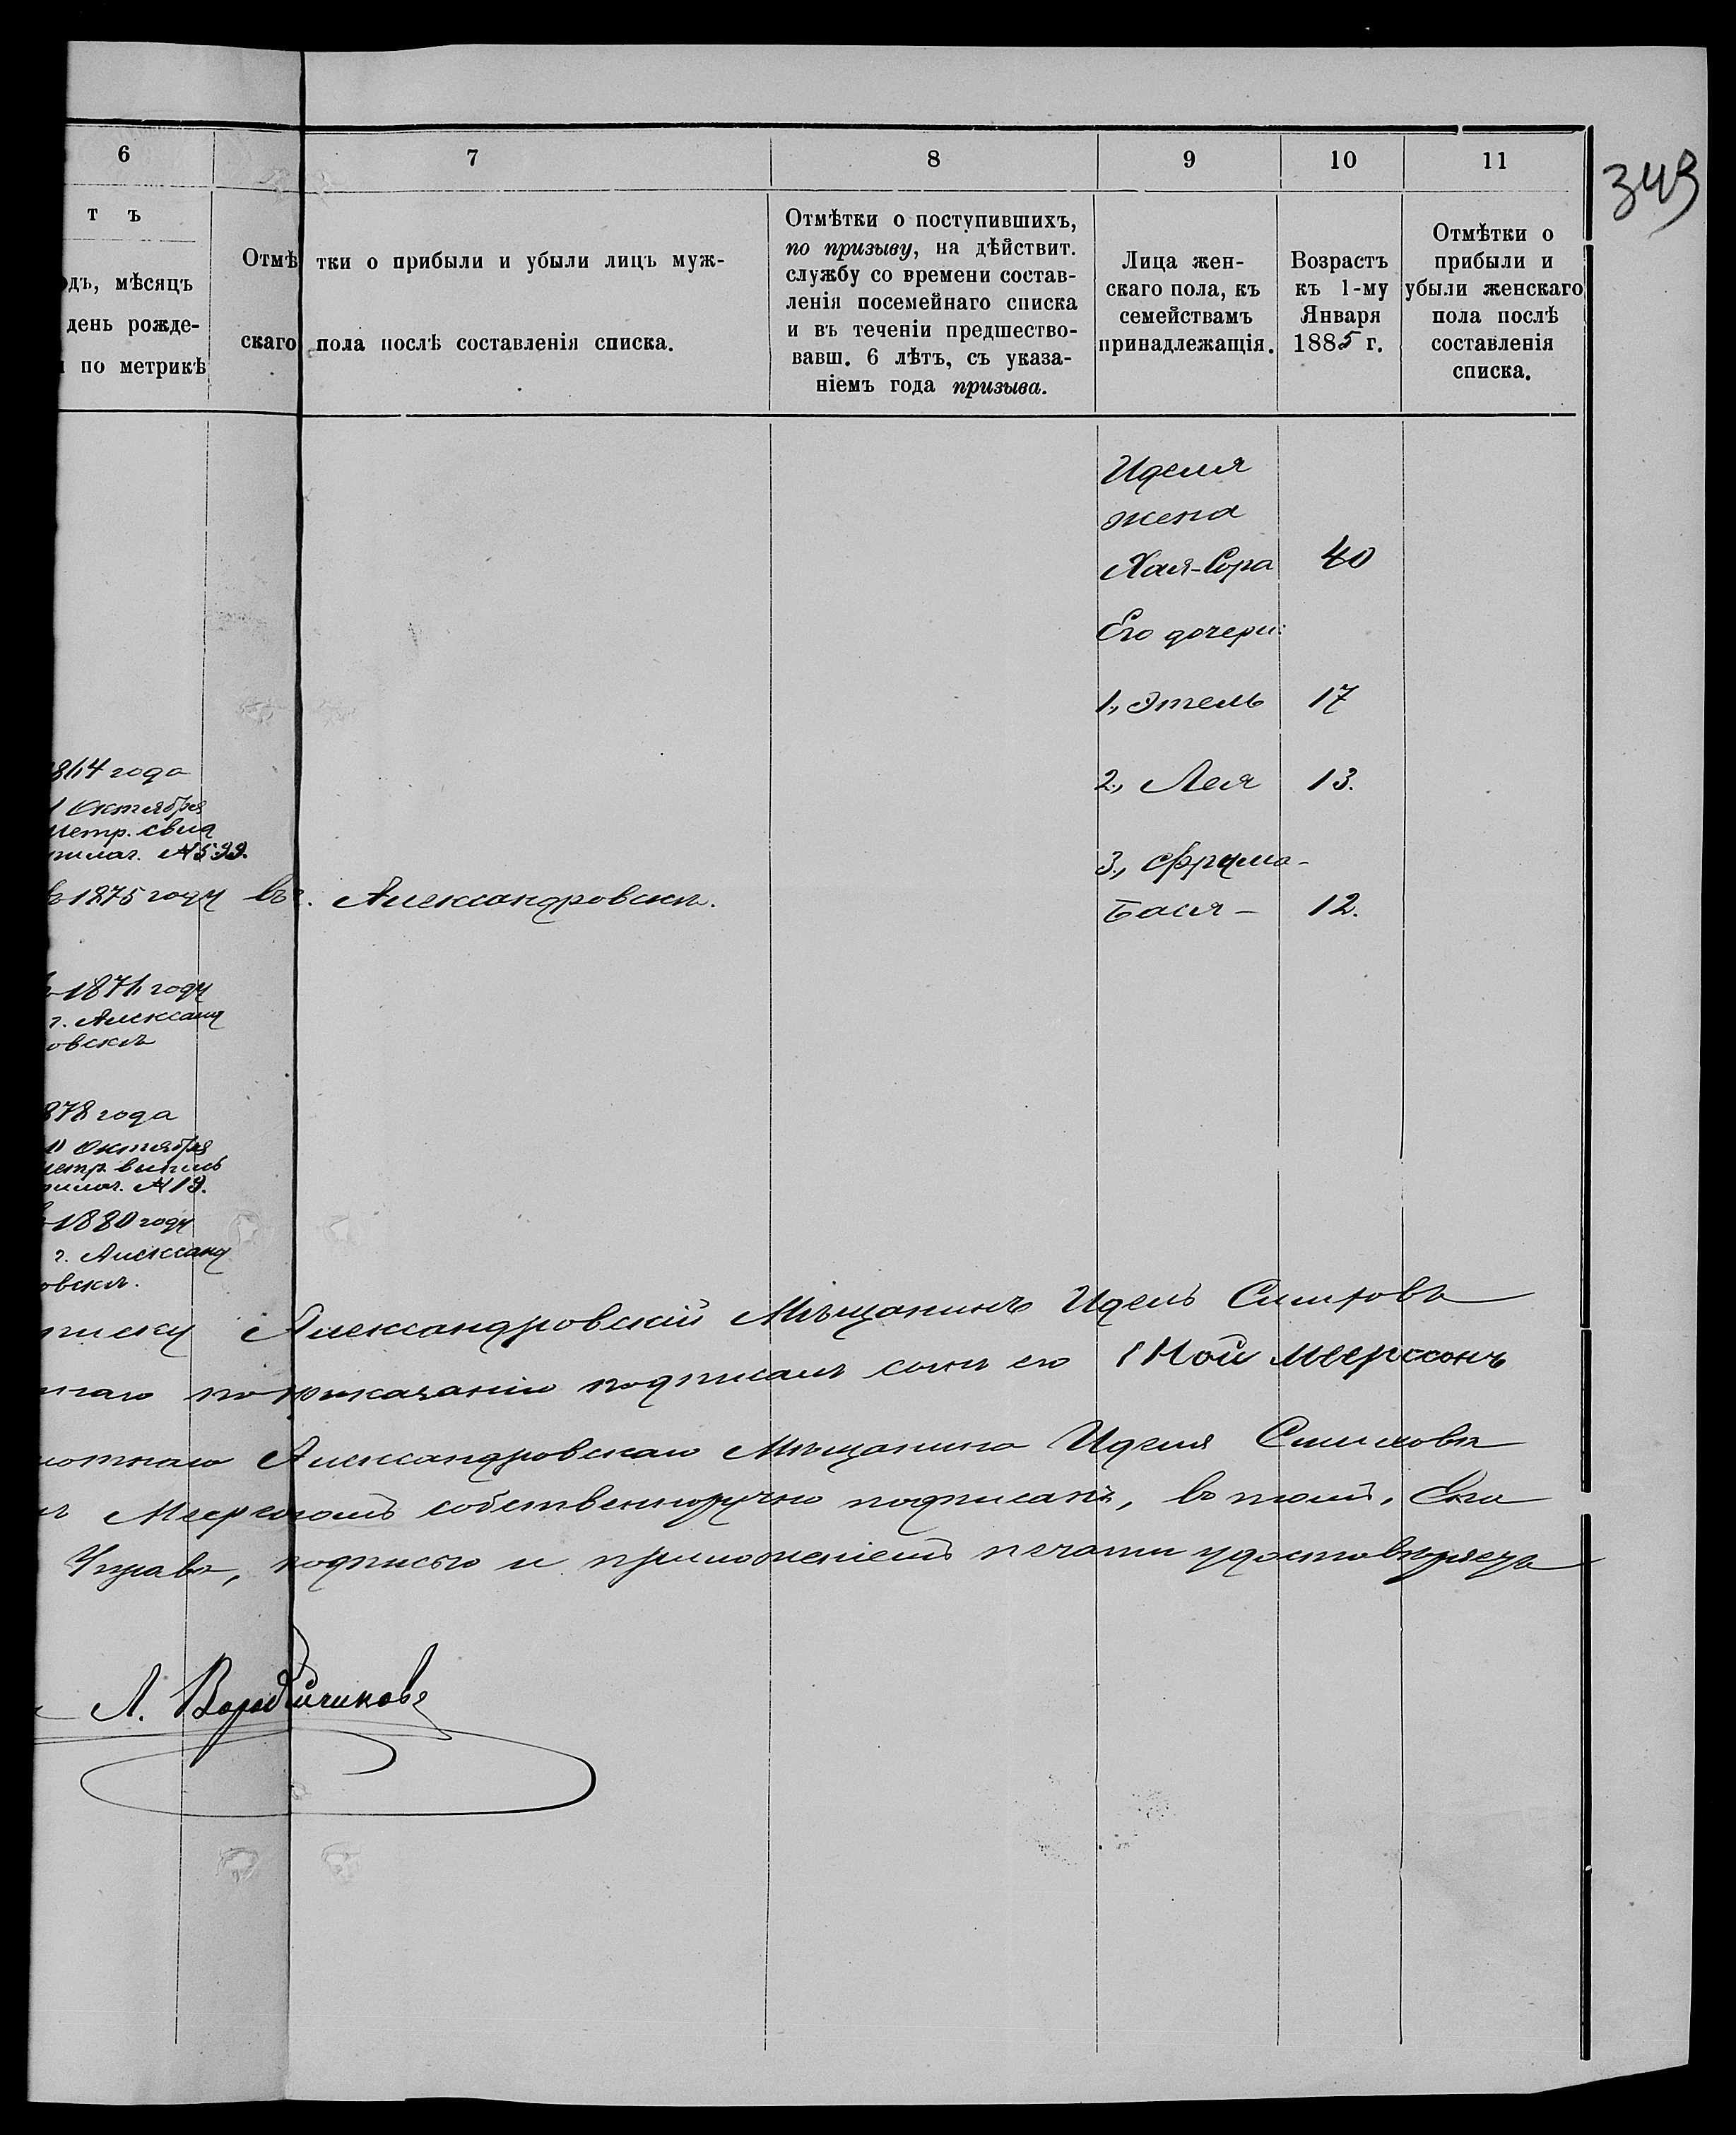 343
6 7 8 9 10 11
т ъ
одъ, мѣсяцъ
день рожде-
по метрикѣ
Отмѣтки о прибыли и убыли лицъ муж-
скаго пола послѣ составленія списка.
Отмѣтки о поступившихъ,
по призыву, на дѣйствит.
службу со времени состав-
ленія посемейнаго списка
и въ теченіи предшество-
вавш. 6 лѣтъ, съ указа-
ніемъ года призыва.
Лица жен-
скаго пола, къ
семействамъ
принадлежащія.
Возрастъ
къ 1-му
Января
1885 г.
Отмѣтки о
прибыли и
убыли женскаго
пола послѣ
составленія
списка.
Иделя
жена
Хая-Сора 40
Его дочери:
1., Этель 17
2., Лея 13.
3., Фрума-
Бася- 12.
864 года
1 Октября
метр. свид
прилаг. № 599.
въ 1875 году въ г. Александровскѣ.
1876 году
г. Александ
овскѣ
878 года
0 Октября
метр. выпись
прилаг. № 19.
1880 году
г. Александ
овскѣ.
писку Александровскій Мѣщанинъ Идель
по приказанію подписалъ сынъ его Ной Меерсонъ
Александровскаго Мѣщанина Иделя
Меерсономъ собственноручно подписанъ, въ томъ,
Управа, подписью и приложеніемъ печати удостовѣряетъ